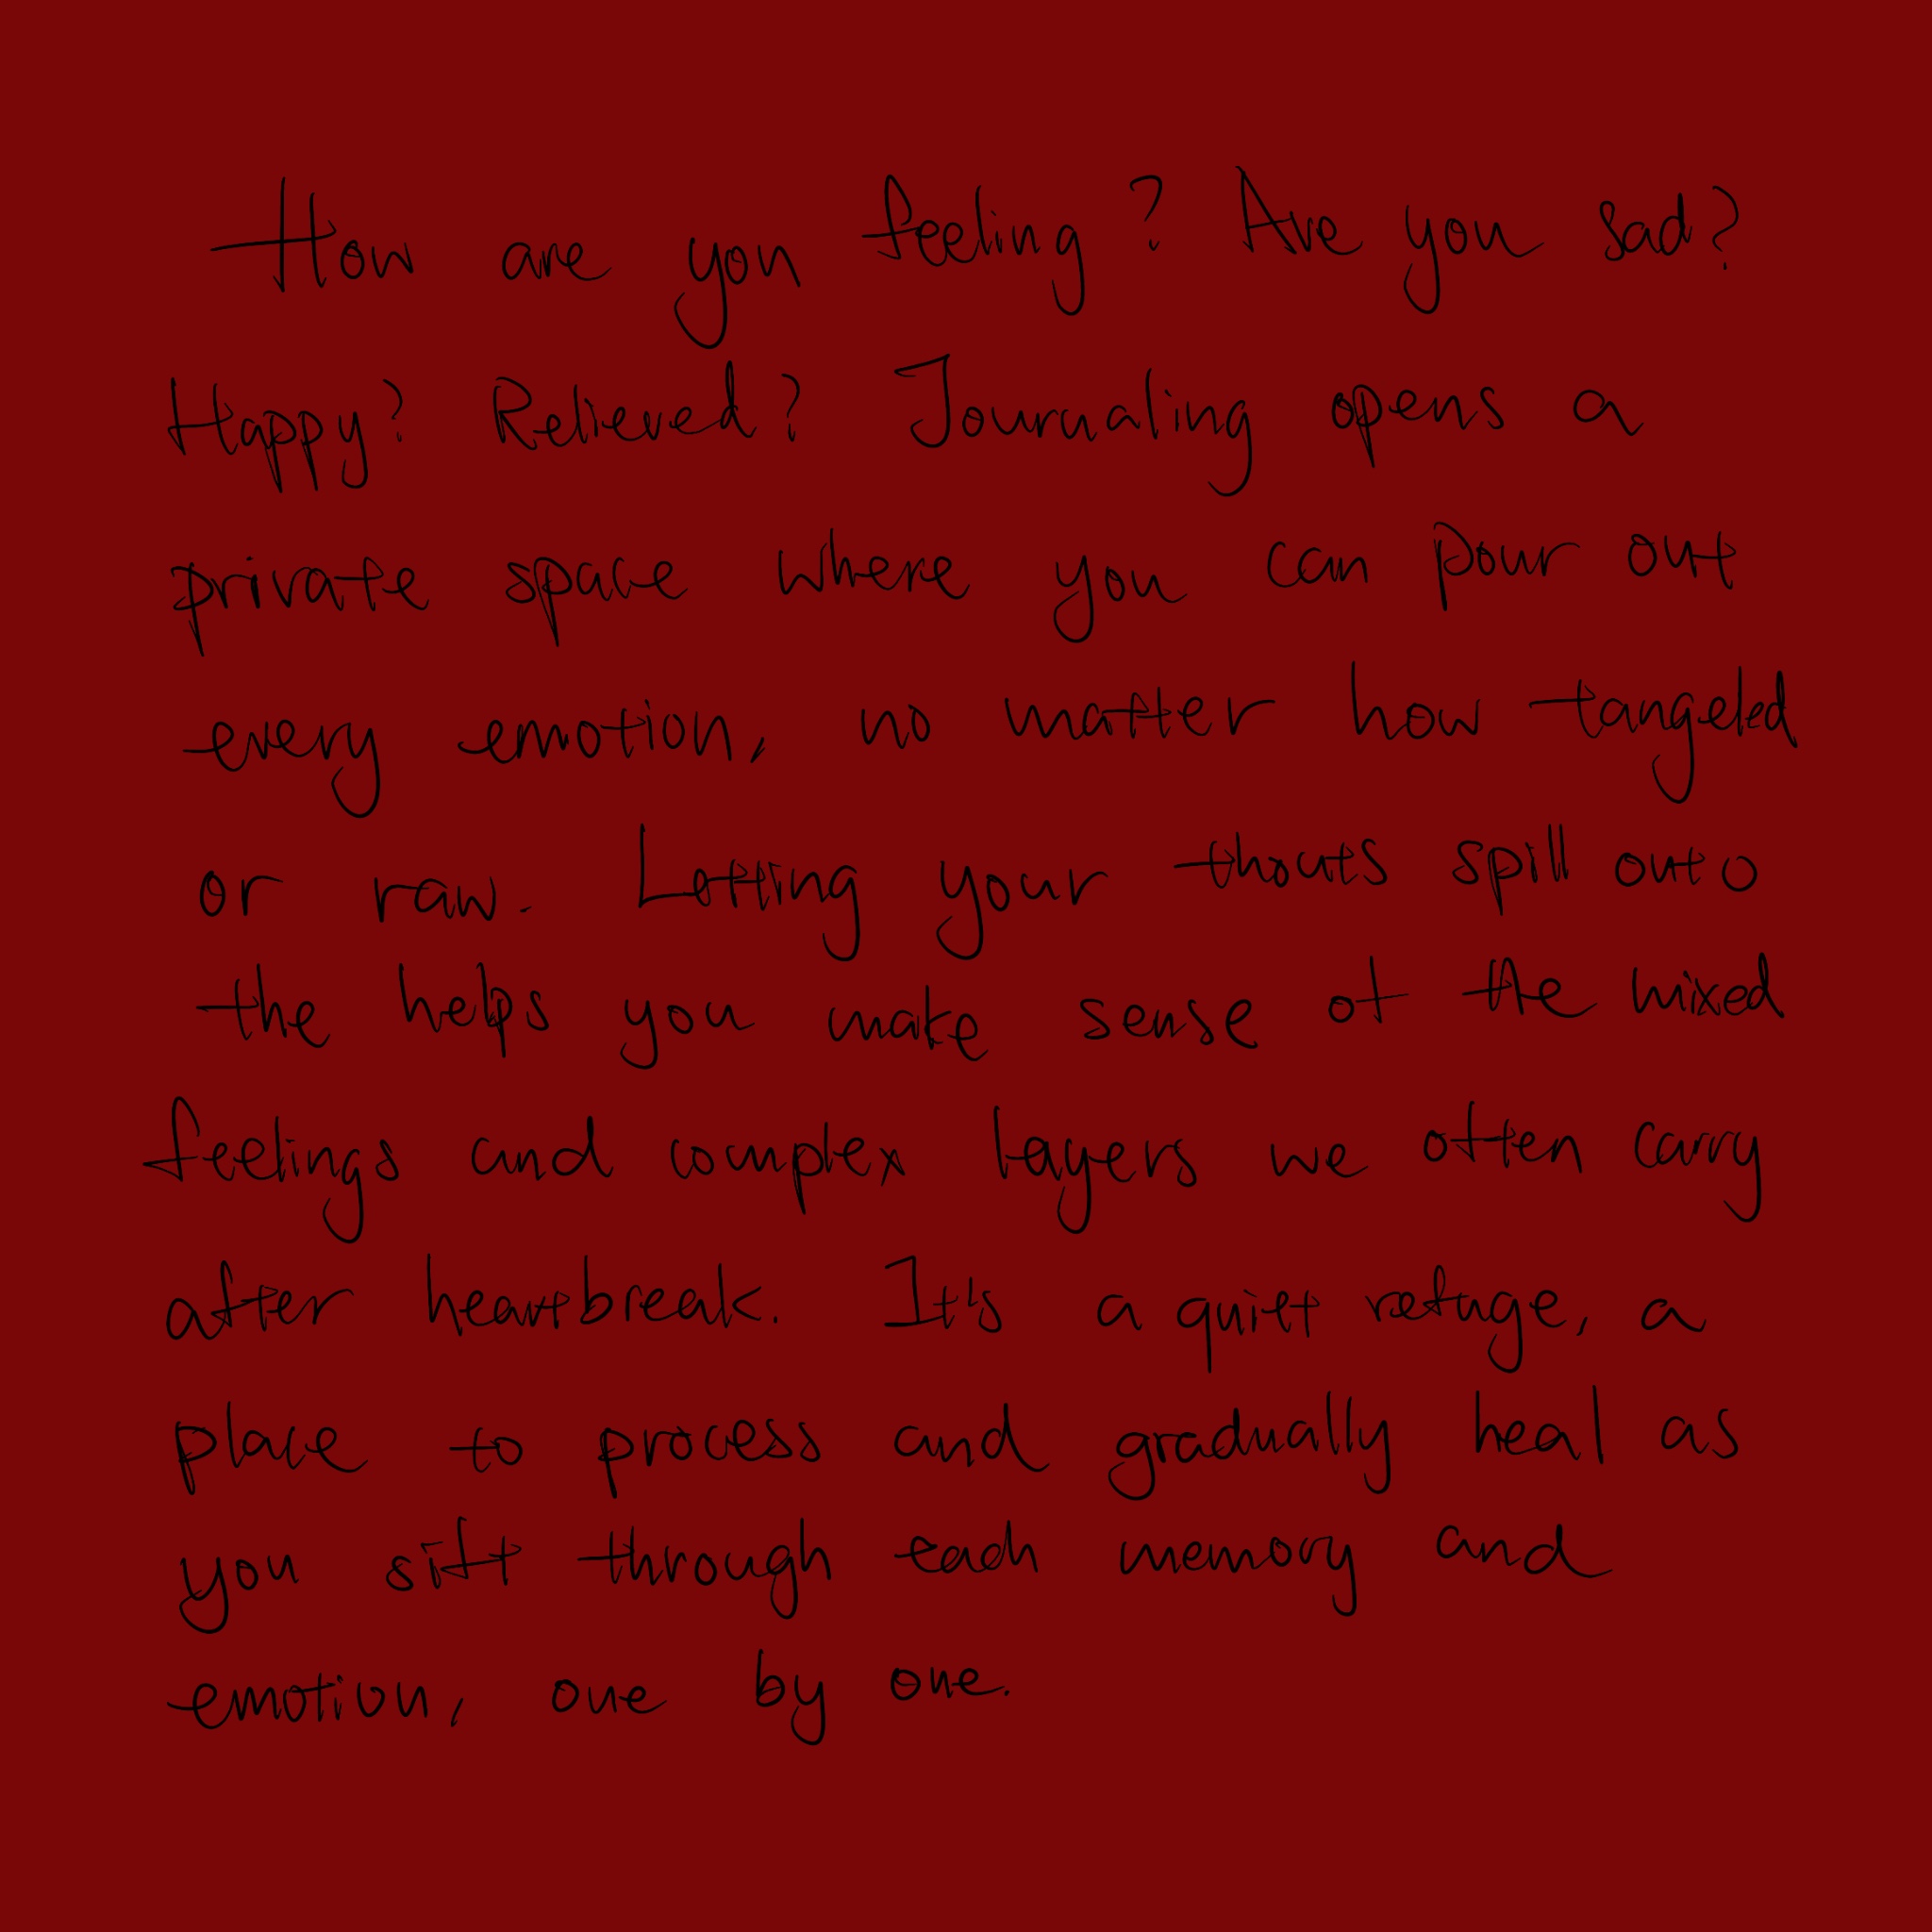 How are you feeling? Are you sad?
Happy? Relieved? Journaling opens a
private space where you can pour out
every emotion, no matter how tangeld
or raw. Letting your thouts spill outo
the helps you make sense of the mixed
feelings and complex layers we often carry
after heartbreak. It's a quiet refuge, a
place to process and gradually heal as
you sift through each memory and
emotion, one by one.